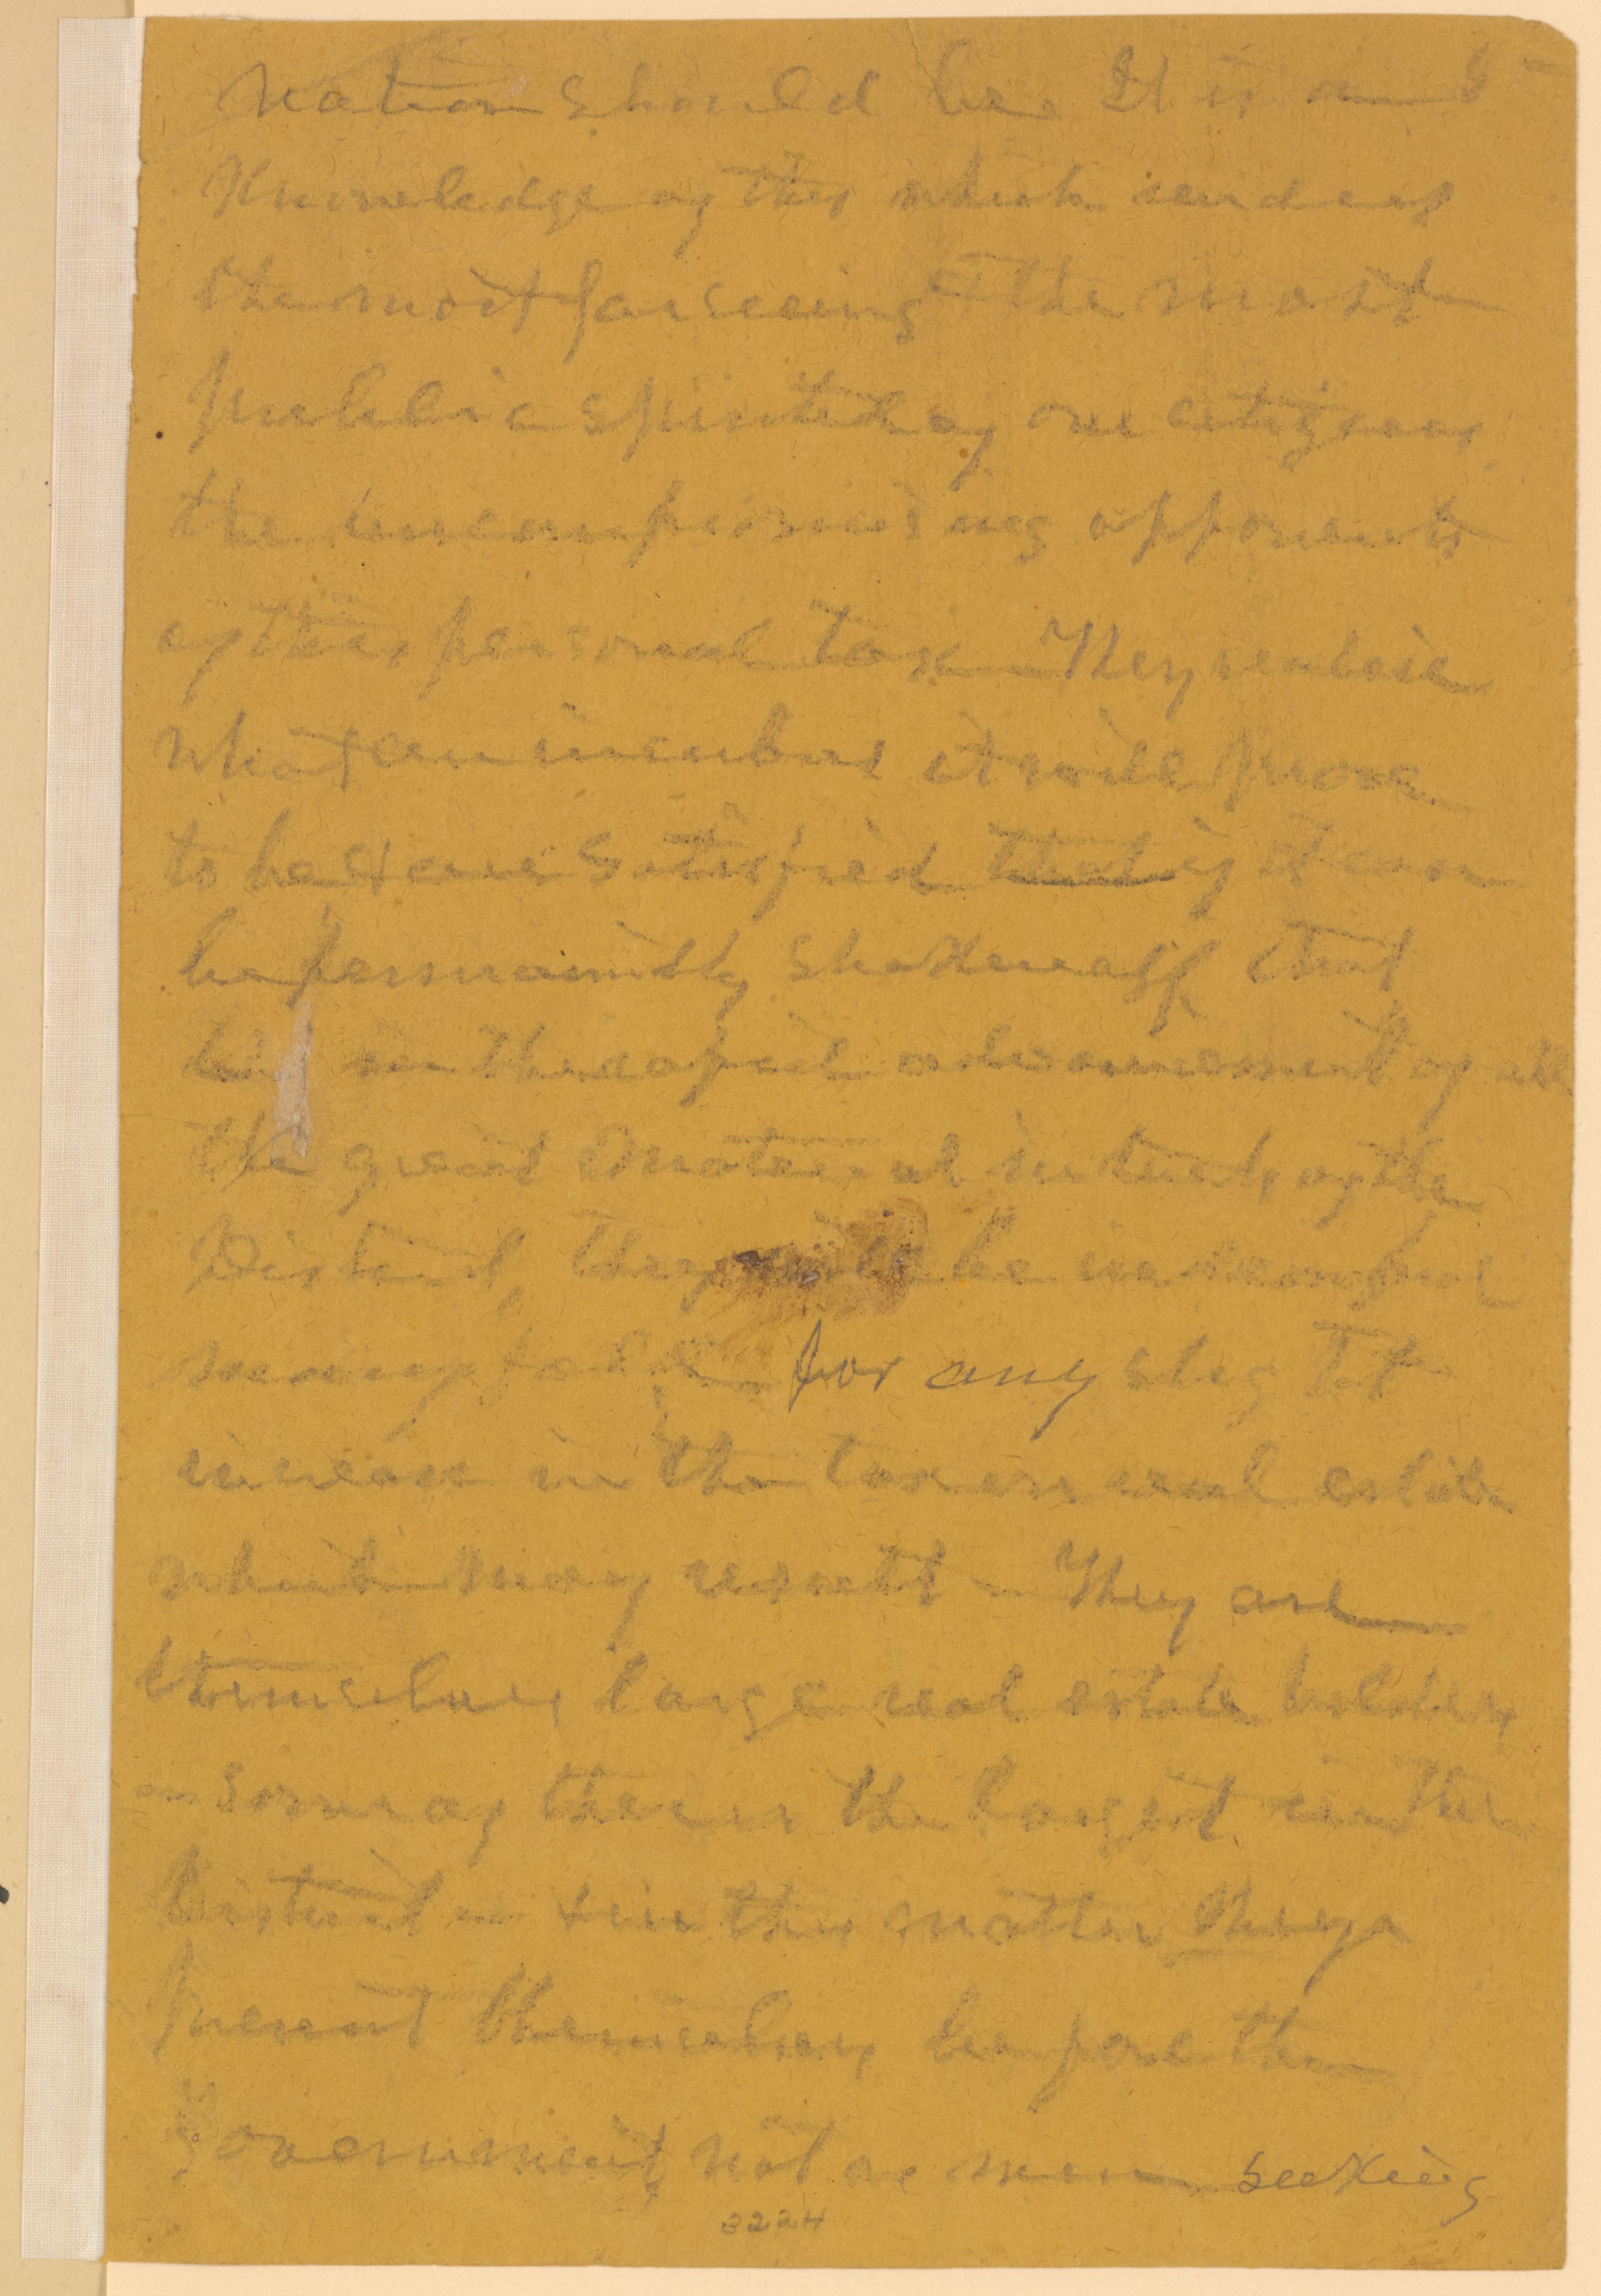 Nation should be. It is a
Knowledge of this which renders
the most farseeing & the most
public spirited of our citizens
the uncompromising opponents
of this personal tax – They realise
what an incubus it will prove
to be & are satisfied that if it can
be permanently shaken off that
in the rapid advancement of all
the great material interests of the
District, they will be
many fold for any slight
increase in the tax on real estate
which may result – They are
themselves large real estate holders
– some of them the largest in the
District – & in this matter they
present themselves before the
Government not as men seeking
3224